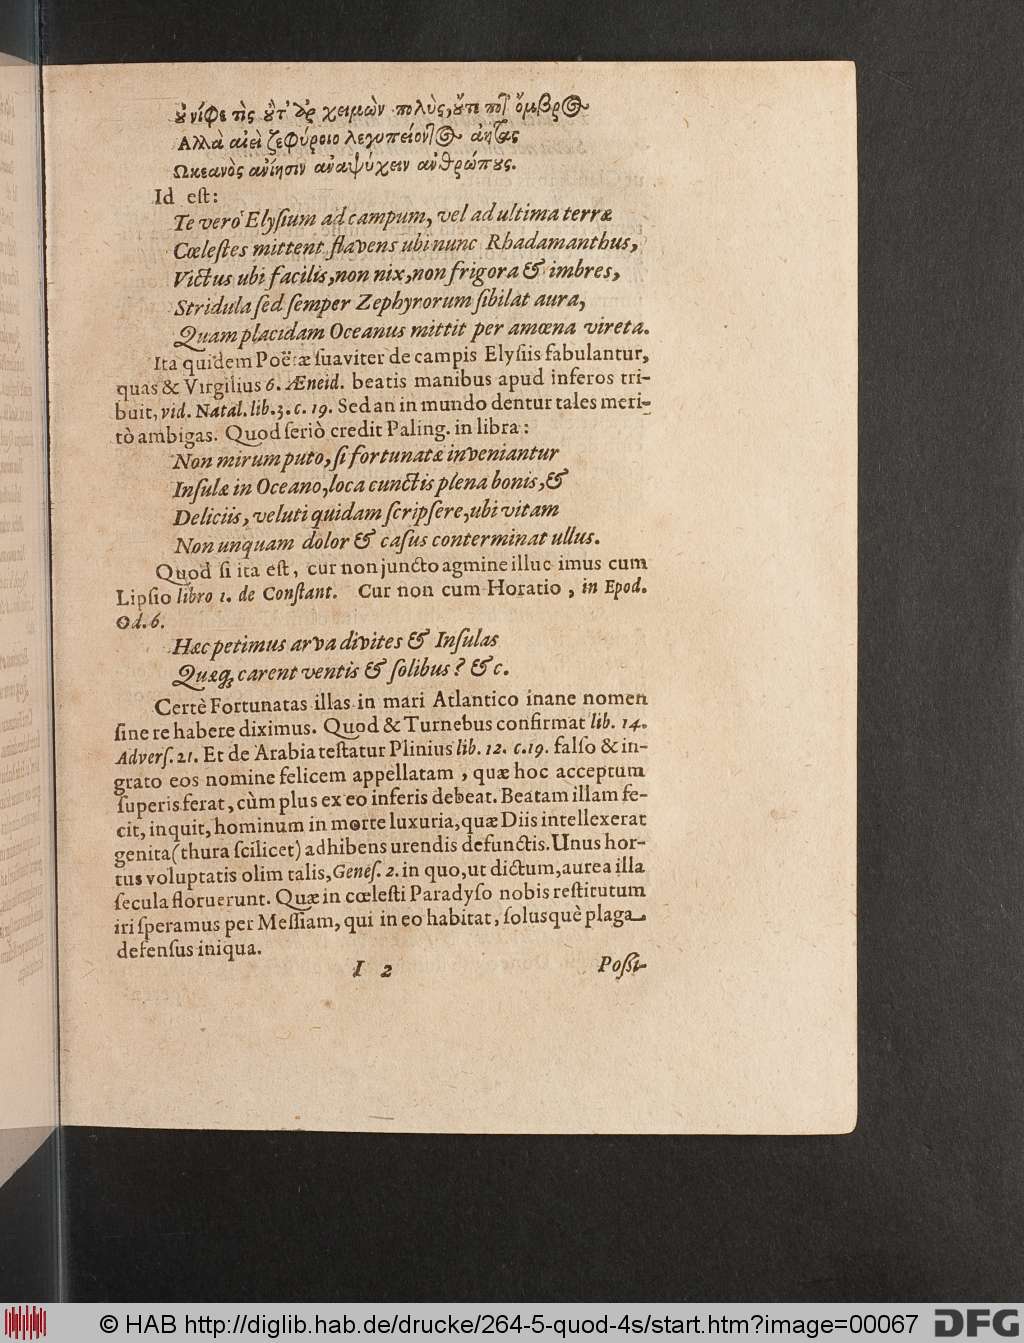 ȣ νίφε τὶς ȣ̓τ’ ἂρ χειμὼν πολὺς, ȣ̓τε ποτ’ ὄμβρος
Αλλὰ αἰεὶ ζεφύροιο λεγυπείοντος ἀήτας
Ωκεανὸς ἀνίησιν ἀναψύχειν ἀνθρώπȣς.
Id eſt:
Te verò Elyſium ad campum, vel ad ultima terræ
Cœleſtes mittent flavens ubi nunc Rhadamanthus,
Victus ubi facilis, non nix, non frigora & imbres,
Stridula ſed ſemper Zephyrorum ſibilat aura,
Quam placidam Oceanus mittit per amœna vireta.
Ita quidem Poëtæ ſuaviter de campis Elyſiis fabulantur,
quas & Virgilius 6. Æneid. beatis manibus apud inferos tri-
buit, vid. Natal. lib. 3. c. 19. Sed an in mundo dentur tales meri-
tò ambigas. Quod ſeriò credit Paling. in libra:
Non mirum puto, ſi fortunatæ inveniantur
Inſulæ in Oceano, loca cunctis plena bonis, &
Deliciis, veluti quidam ſcripſere, ubi vitam
Non unquam dolor & caſus conterminat ullus.
Quod ſi ita eſt, cur non juncto agmine illuc imus cum
Lipſio libro 1. de Conſtant. Cur non cum Horatio, in Epod.
Od. 6.
Hæc petimus arva divites & Inſulas
Quæq; carent ventis & ſolibus? & c.
Certè Fortunatas illas in mari Atlantico inane nomen
ſine re habere diximus. Quod & Turnebus confirmat lib. 14.
Adverſ. 21. Et de Arabia teſtatur Plinius lib. 12. c. 19. falſo & in-
grato eos nomine felicem appellatam, quæ hoc acceptum
ſuperis ferat, cùm plus ex eo inferis debeat. Beatam illam fe-
cit, inquit, hominum in morte luxuria, quæ Diis intellexerat
genita (thura ſcilicet) adhibens urendis defunctis. Unus hor-
tus voluptatis olim talis, Geneſ. 2. in quo, ut dictum, aurea illa
ſecula floruerunt. Quæ in cœleſti Paradyſo nobis reſtitutum
iri ſperamus per Meſſiam, qui in eo habitat, ſolusquè plaga
defenſus iniqua.
I 2 Poſſi-
© HAB http://diglib.hab.de/drucke/264-5-quod-4s/start.htm?image=00067
DFG